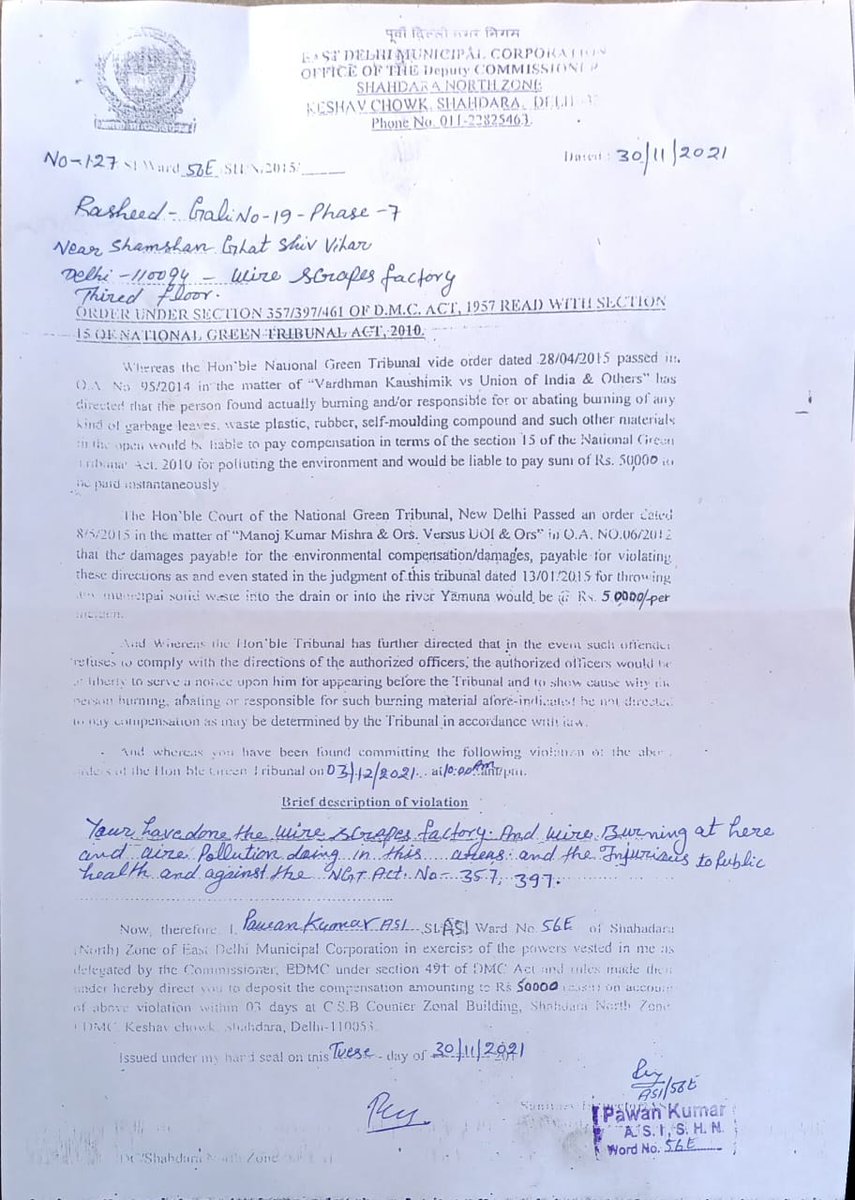 पूर्वी दिल्ली नगर निगम
EAST DELHI MUNICIPAL CORPORATION
OFFICE OF THE Deputy COMMISSIONER
SHAHDARA NORTH ZONE
KESHAV CHOWK, SHAHDARA, DELHI-32
Phone No. 011-22825463.
No-127 SI Ward 56E /SH.N/2015/ Dated : 30/11/2021
Rasheed - Gali No-19 - Phase - 7
Near Shamshan Ghat Shiv Vihar
Delhi - 110094 - wire scrapes factory
Thired floor.
ORDER UNDER SECTION 357/397/461 OF D.M.C. ACT, 1957 READ WITH SECTION
15 OF NATIONAL GREEN TRIBUNAL ACT, 2010.
Whereas the Hon'ble National Green Tribunal vide order dated 28/04/2015 passed in
O.A No. 95/2014 in the matter of "Vardhman Kaushimik vs Union of India & Others" has
directed that the person found actually burning and/or responsible for or abating burning of any
kind of garbage leaves, waste plastic, rubber, self-moulding compound and such other materials
in the open would be liable to pay compensation in terms of the section 15 of the National Green
Tribunal Act, 2010 for polluting the environment and would be liable to pay sum of Rs. 50000 to
be paid instantaneously
The Hon'ble Court of the National Green Tribunal, New Delhi Passed an order dated
8/5/2015 in the matter of "Manoj Kumar Mishra & Ors. Versus UOI & Ors" in O.A. NO.06/2012
that the damages payable for the environmental compensation/damages, payable for violating
these directions as and even stated in the judgment of this tribunal dated 13/01/2015 for throwing
any municipal solid waste into the drain or into the river Yamuna would be @ Rs. 50000/-per
incident.
And Whereas the Hon'ble Tribunal has further directed that in the event such offender
refuses to comply with the directions of the authorized officers, the authorized officers would be
at liberty to serve a notice upon him for appearing before the Tribunal and to show cause why the
person burning, abating or responsible for such burning material afore-indicated be not directed
to pay compensation as may be determined by the Tribunal in accordance with law.
And whereas you have been found committing the following violation of the above
orders of the Hon'ble Green Tribunal on 03/12/2021 at 10:00 AM am/pm.
Brief description of violation
Your have done the wire scrapes factory. And wire Burning at here
and aire Pollution doing in this areas. and the Injurious to Public
health and against the NGT Act. No- 357, 397.
Now, therefore I, Pawan Kumar ASI SI/ASI Ward No. 56E of Shahadara
(North) Zone of East Delhi Municipal Corporation in exercise of the powers vested in me as
delegated by the Commissioner, EDMC under section 491 of DMC Act and rules made there
under hereby direct you to deposit the compensation amounting to Rs 50000 on account
of above violation within 03 days at C.S.B Counter Zonal Building, Shahdara North Zone
EDMC, Keshav chowk, Shahdara, Delhi-110053.
Issued under my hand seal on this Tuese - day of 30/11/2021
ASI/56E
Sanitary Inspector
Pawan Kumar
A. S. I. S. H. N.
Word No. 56E
DC/Shahdara North Zone